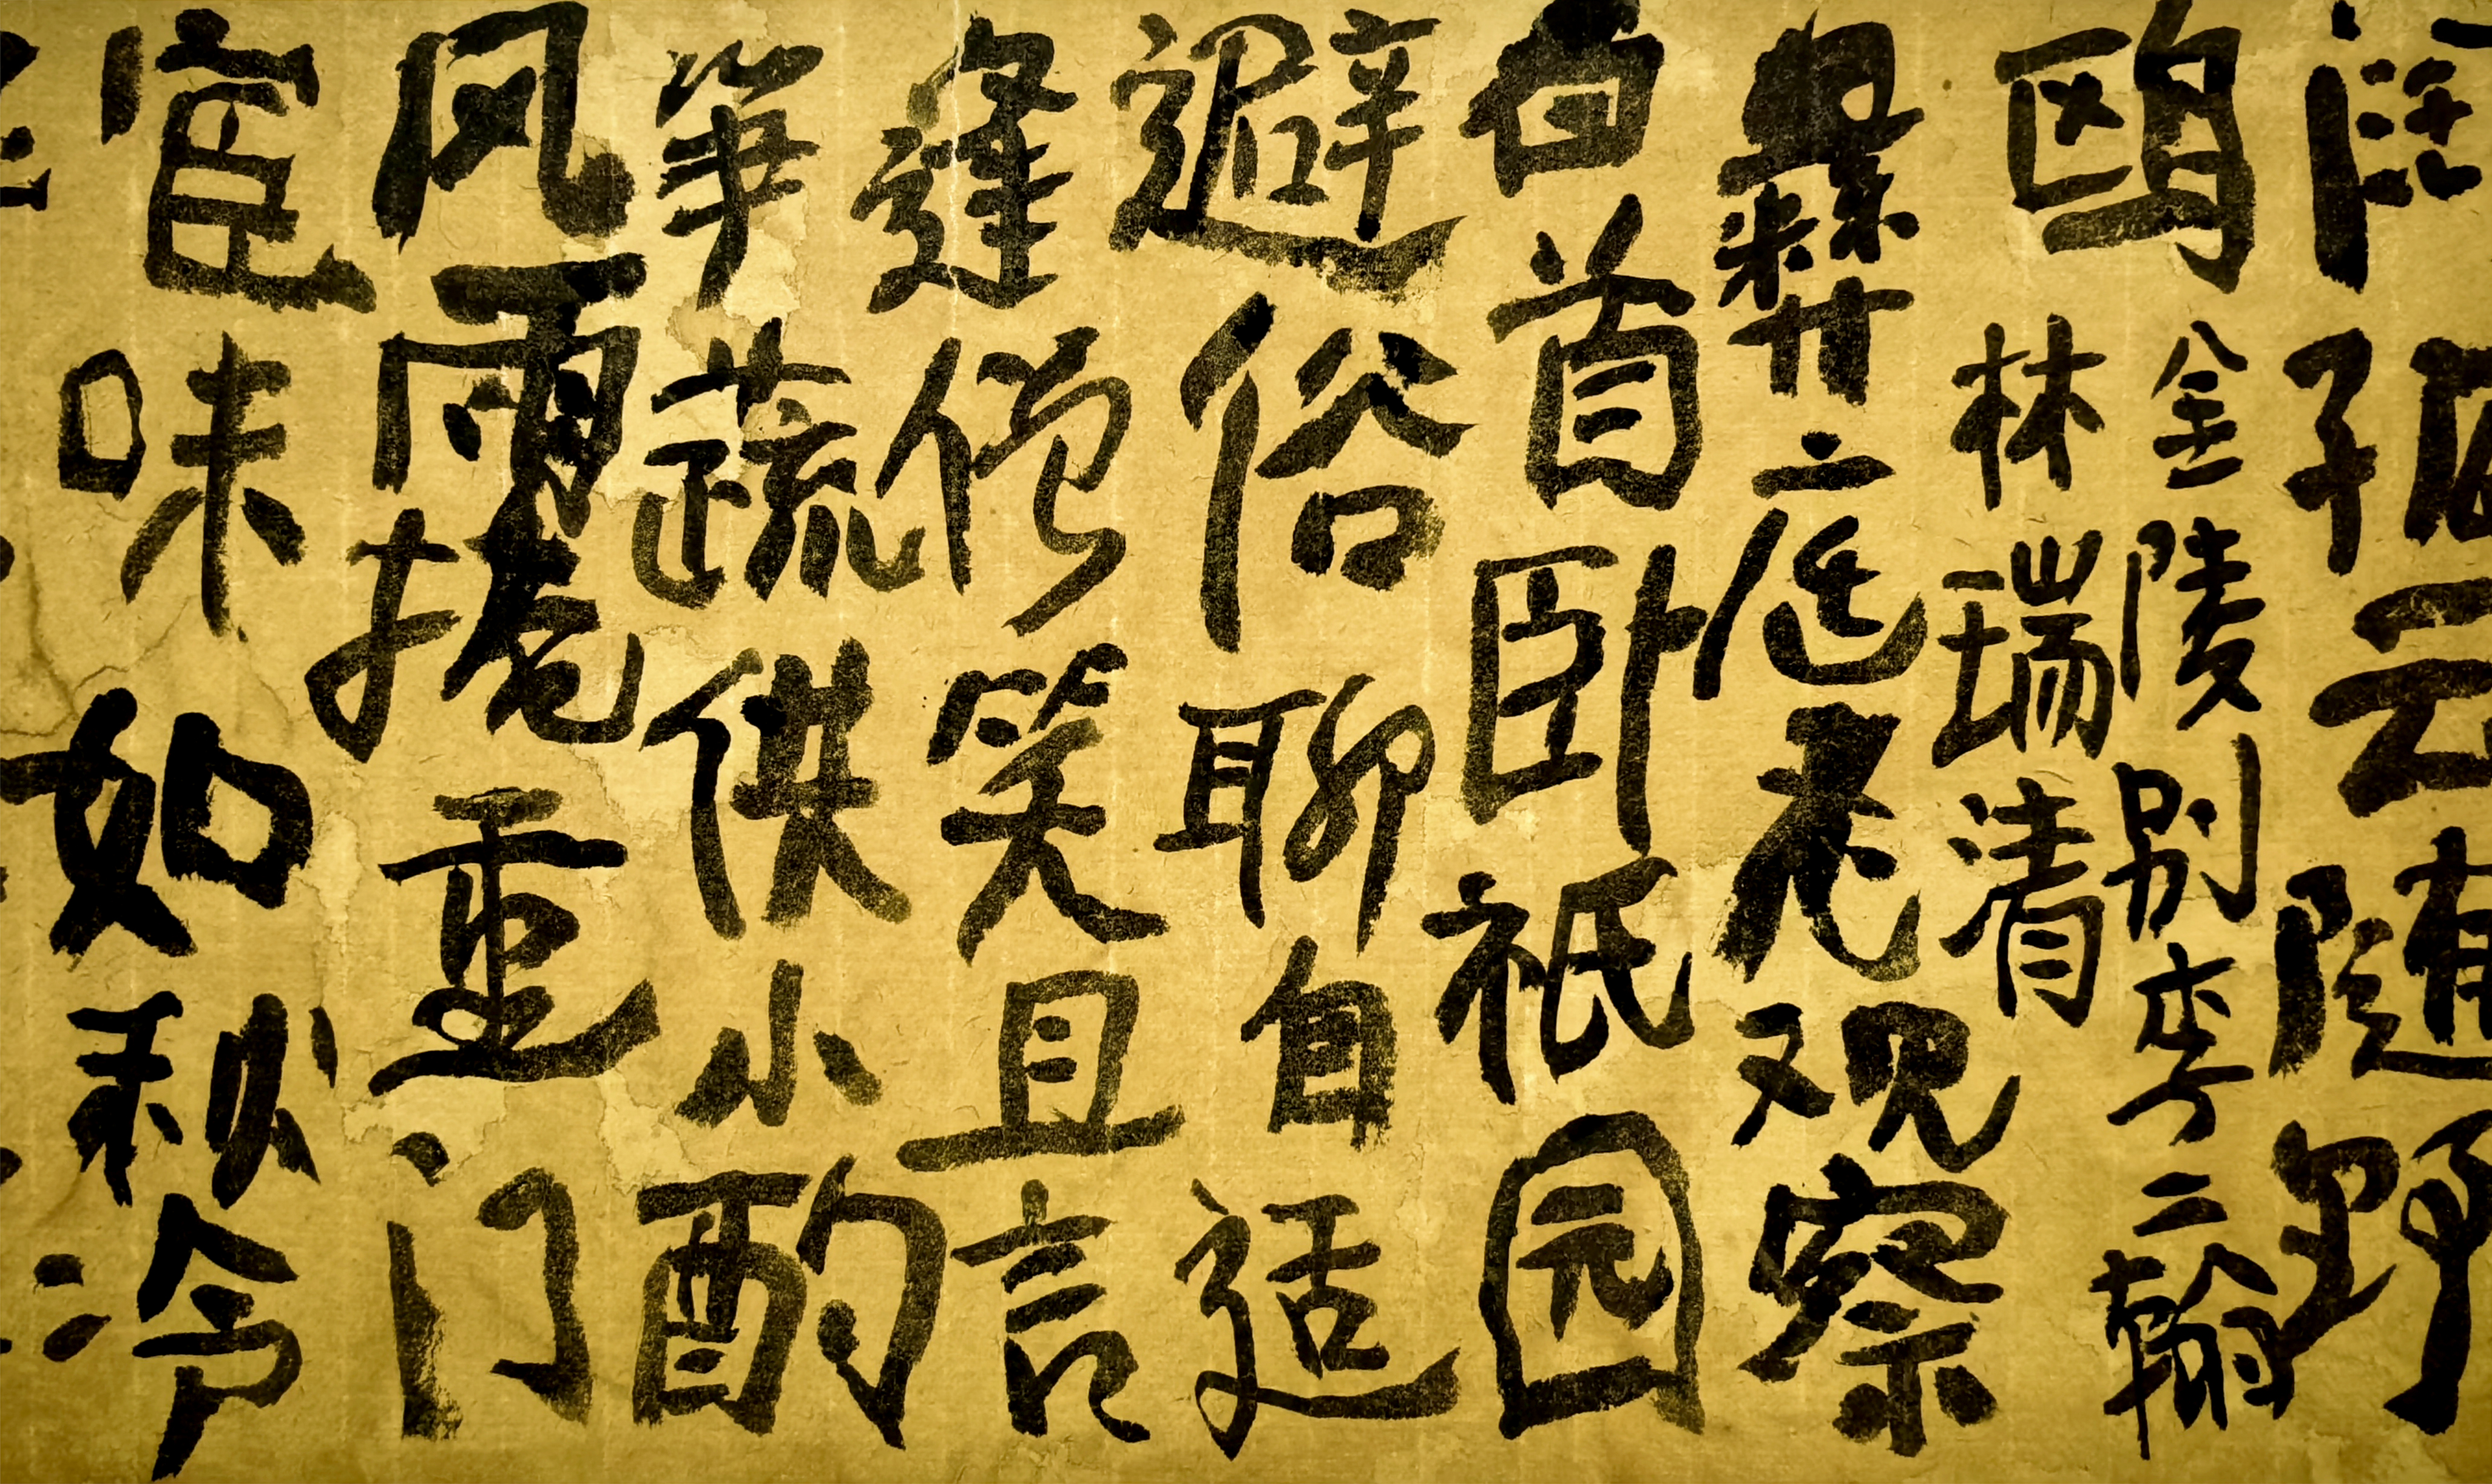 孤云随野
鸥
金陵别李二翰
林瑞清
彝庭老观察
白首卧祇园
避俗聊自适
逢僧笑且言
笋蔬供小酌
风雨掩重门
宦味如秋冷